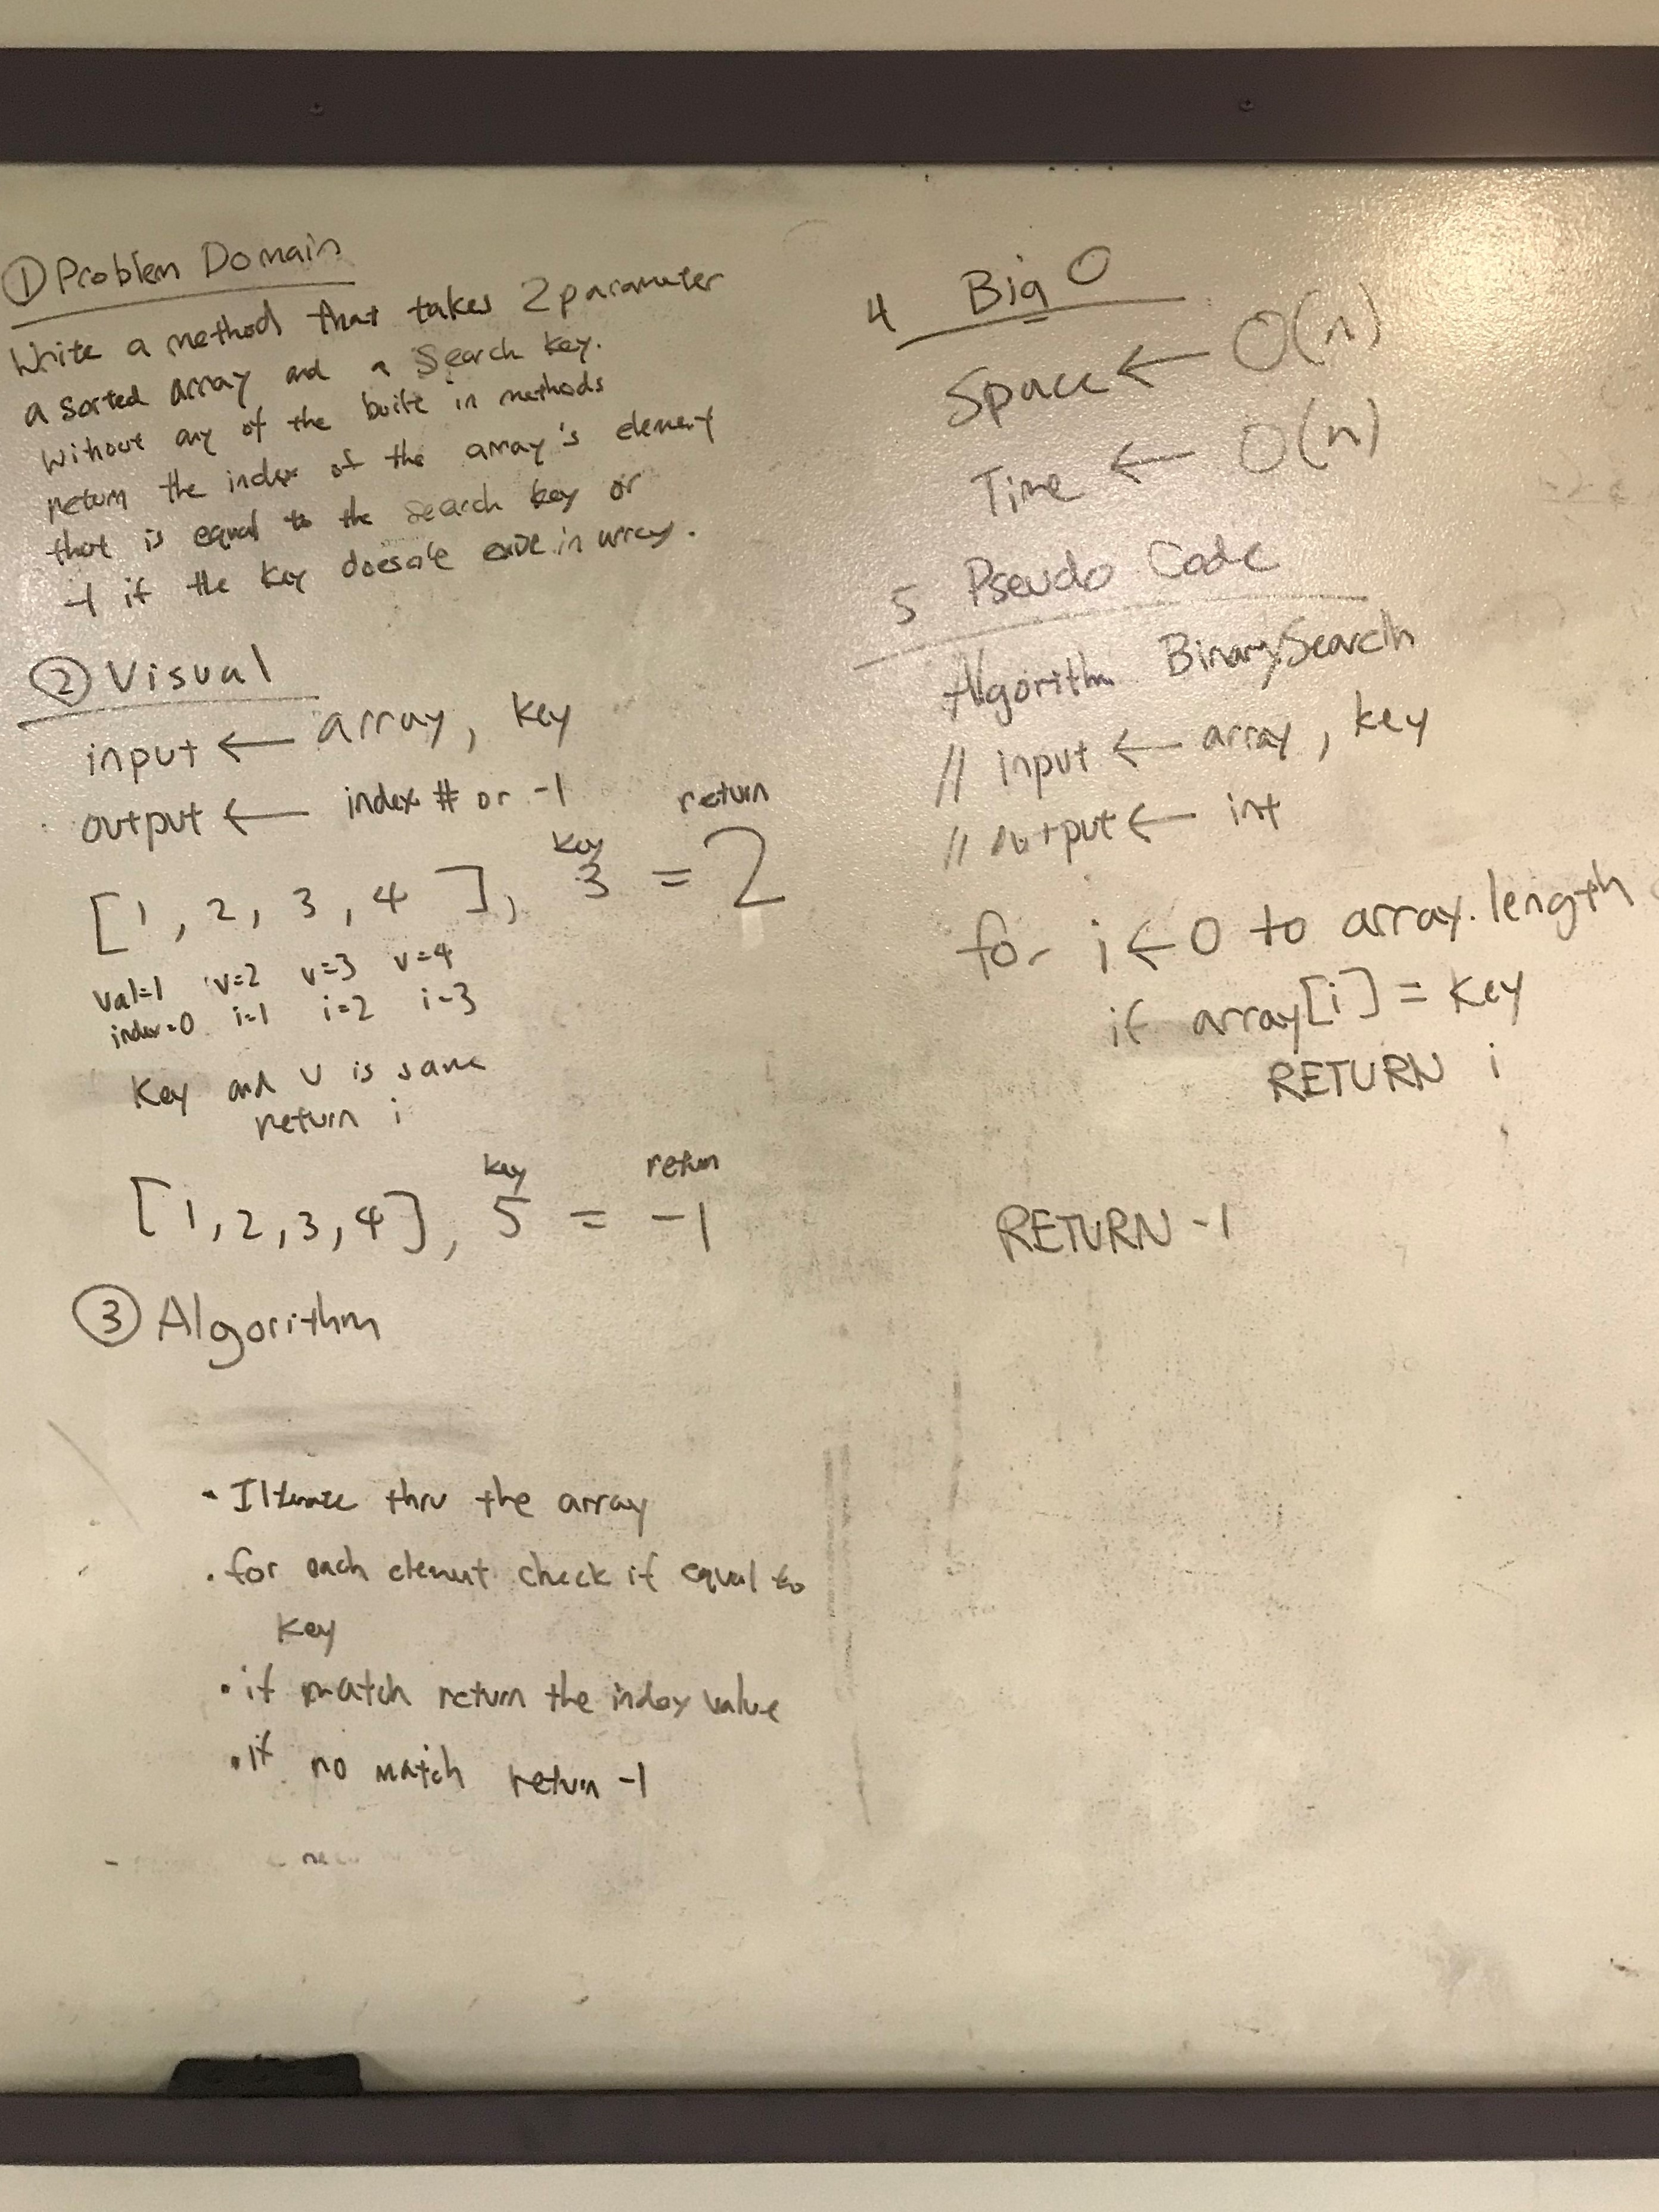 ① Problem Domain
Write a method that takes 2 parameter
a sorted array and a search key.
Without any of the built in methods
return the index of the array's element
that is equal to the search key or
-1 if the key doesn't exist in array.
② Visual
input ← array, key
output ← index # or -1
key return
[1, 2, 3, 4], 3 = 2
val=1 v=2 v=3 v=4
index=0 i=1 i=2 i=3
Key and v is same
return i
key return
[1,2,3,4], 5 = -1
③ Algorithm
• thru the array
• for each element check if equal to
key
• if match return the index value
• If no match return -1
4 Big O
Space ← O(n)
Time ← O(n)
5 Pseudo Code
Algorithm BinarySearch
// input ← array, key
// output ← int
for i ← 0 to array.length
if array[i] = key
RETURN i
RETURN -1